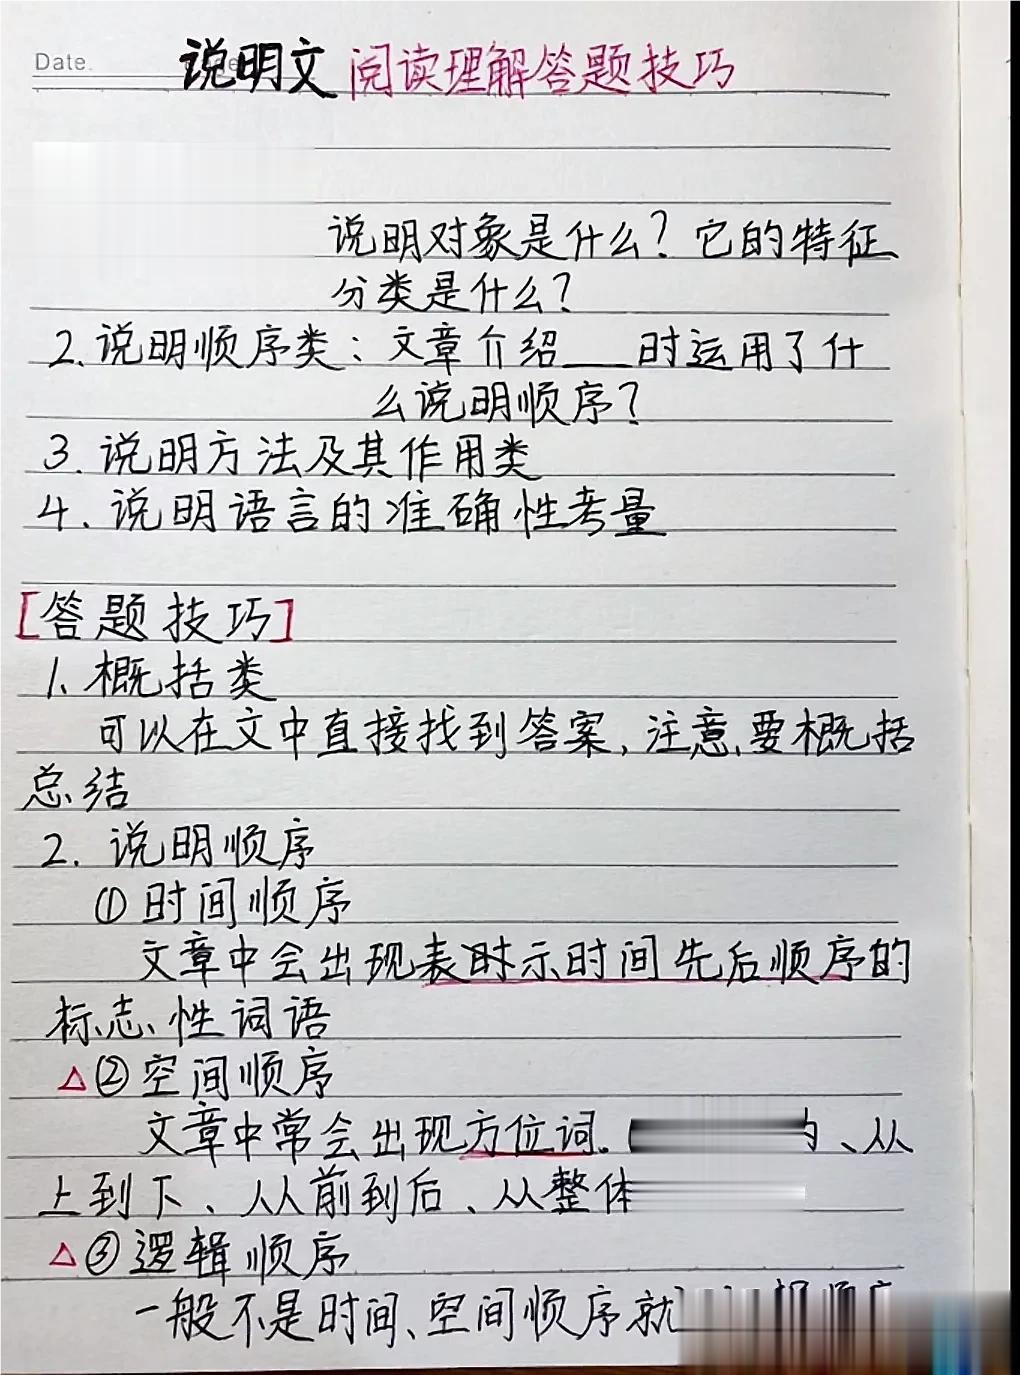 Date.
说明文 阅读理解答题技巧
说明对象是什么？它的特征
分类是什么？
2.说明顺序类：文章介绍___时运用了什
么说明顺序？
3.说明方法及其作用类
4.说明语言的准确性考量
[答题技巧]
1.概括类
可以在文中直接找到答案,注意要概括
总结
2.说明顺序
①时间顺序
文章中会出现表时示时间先后顺序的
标志性词语
△②空间顺序
文章中常会出现方位词.（、从
上到下、从前到后、从整体
△③逻辑顺序
一般不是时间、空间顺序就